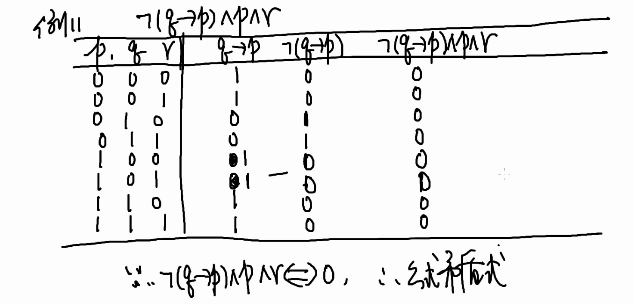 例11 ¬(q→p)∧p∧r
p, q r q→p ¬(q→p) ¬(q→p)∧p∧r
0 0 0 1 0 0
0 0 1 1 0 0
0 1 0 0 1 0
0 1 1 0 1 0
1 0 0 1 0 0
1 0 1 1 — 0 0
1 1 0 1 0 0
1 1 1 1 0 0
∵ ¬(q→p)∧p∧r⇔0, ∴ 公式矛盾式